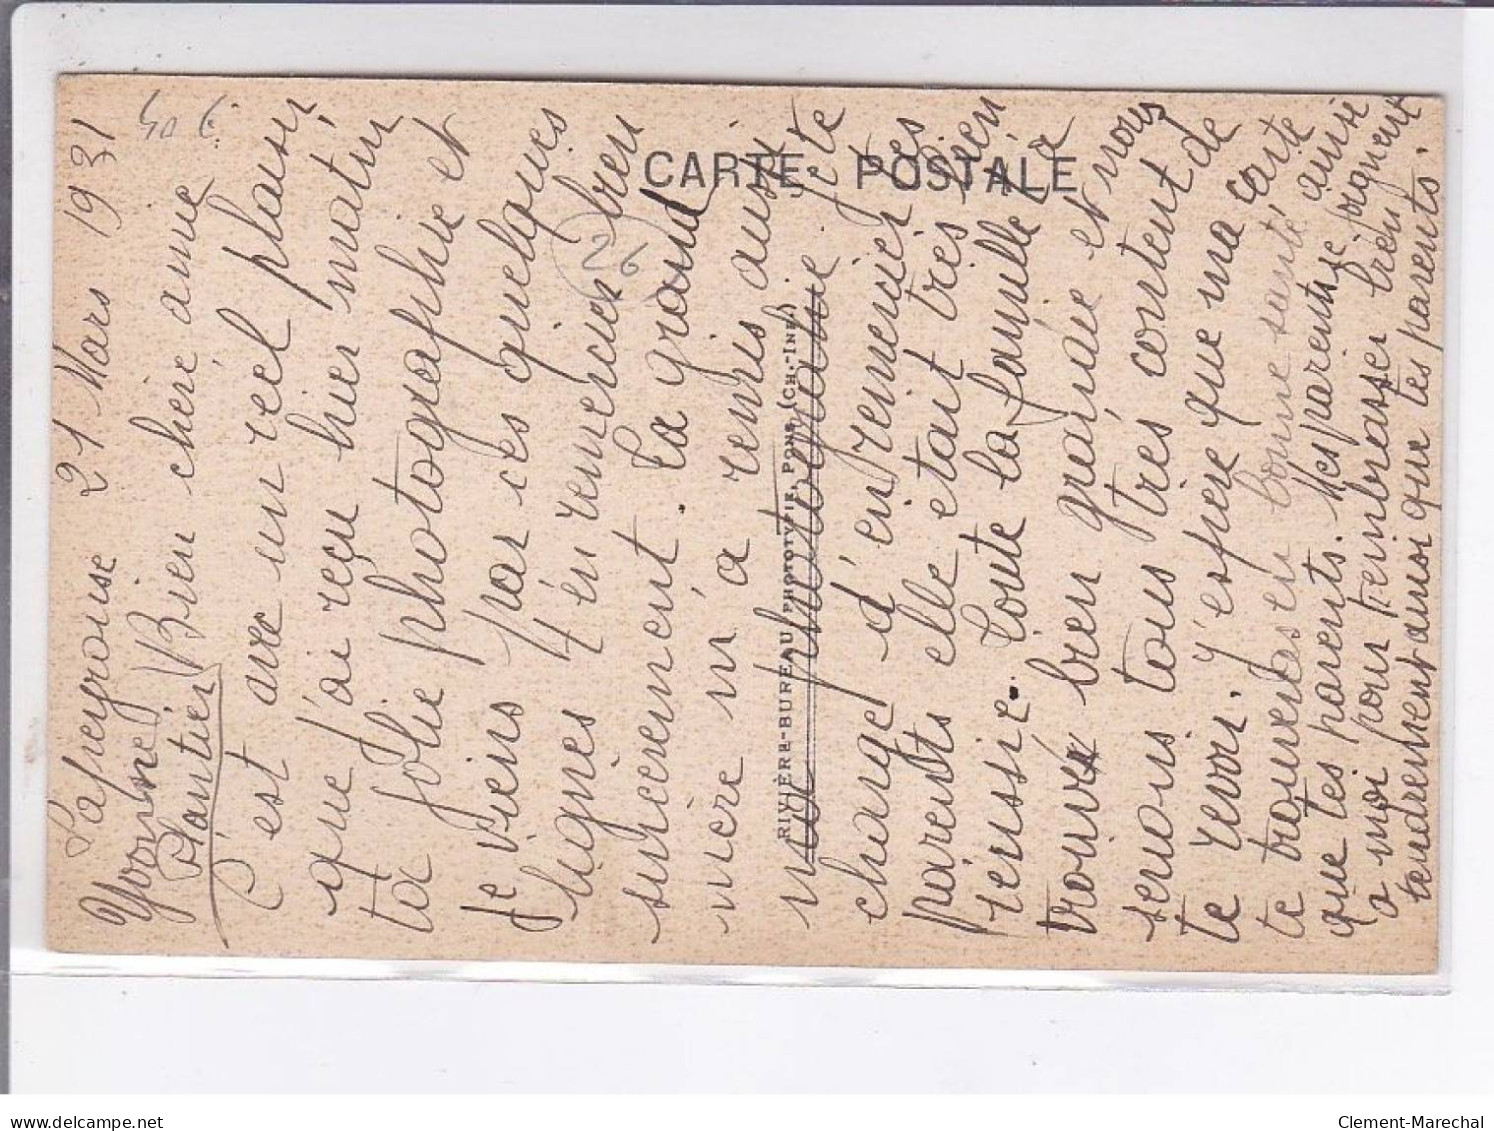 Lapeyrouse 21 Mars 1931
Yvonne
Plantier
Bien chère amie
C'est avec un réel plaisir
que j'ai reçu hier matin
ta jolie photographie et
je viens par ces quelques
lignes t'en remercier bien
sincèrement. La grand
mère m'a remis aussi
ma photographie je te
charge d'en remercier tes
parents elle était très bien
réussie. Toute la famille t'a
trouvé bien grandie et nous
serions tous très content de
te revoir. J'espère que ma carte
te trouveras en bonne santé ainsi
que tes parents. Mes parents se joignent
a moi pour t'embrasser bien
tendrement ainsi que tes parents.
CARTE POSTALE
RIVIÈRE-BUREAU PHOTOTYPIE, PONS (CH.-INF.)
delcampe.net
Clement-Marechal